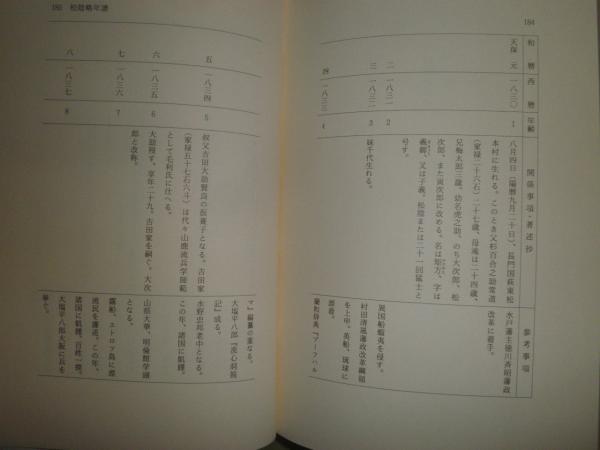 184
和暦
西暦
年齢
関係事項・著述抄
参考事項
天保 元
一八三〇
1
八月四日(陽暦九月二十日)、長門国萩東松
本村に生れる。このとき父杉百合之助常道
(家禄二十六石)二十七歳、母滝は二十四歳、
兄梅太郎三歳。幼名虎之助、のち大次郎、松
次郎、また寅次郎に改める。名は矩方、字は
義卿、又は子義。松陰または二十一回猛士と
号す。
水戸藩主徳川斉昭藩政
改革に着手。
二
一八三一
2
三
一八三二
3
妹千代生れる。
異国船蝦夷を侵す。
村田清風藩政改革綱領
を上申。英船、琉球に
四
一八三三
4
185 松陰略年譜
マ」編纂の業なる。
五
一八三四
5
叔父吉田大助賢良の仮養子となる。吉田家
(家禄五十七石六斗)は代々山鹿流兵学師範
として毛利氏に仕へる。
大塩平八郎『洗心洞箚
記』成る。
水野忠邦老中となる。
この年、諸国に飢饉。
六
一八三五
6
大助歿す、享年二十九。吉田家を嗣ぐ。大次
郎と改称。
山県大華、明倫館学頭
となる。
七
一八三六
7
露船、エトロフ島に漂
流民を護送。この年、
諸国に飢饉、百姓一揆。
八
一八三七
8
大塩平八郎大阪に兵を
挙ぐ。